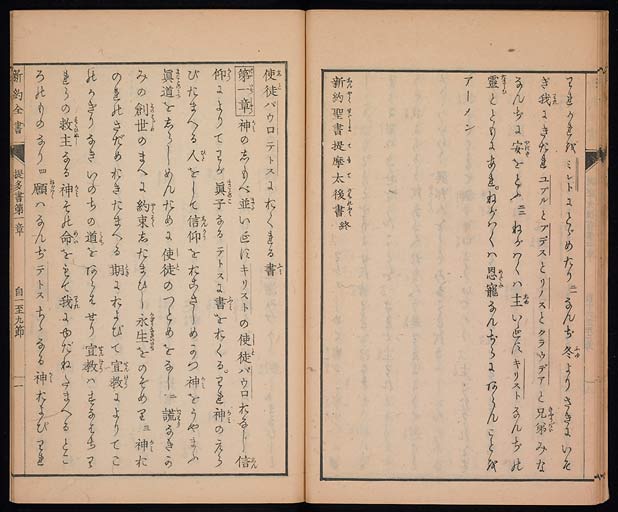 われかれをミレトにとどめたり 二一 なんぢ冬よりさきにいそ
ぎ我にきたれユブルとプデスとリノスとクラウデアと兄弟みな
なんぢに安をとふ 二二 ねがハくハ主いゑすキリストなんぢの
靈とともにあれ。ねがハくハ恩寵なんぢらにあらんことを
アーメン
新約聖書提摩太後書 終
使徒パウロテトスにおくれる書
第一章 神のしもべ並いゑすキリストの使徒パウロおなじ信
仰によりてわが眞子なるテトスに書をおくる。われ神のえら
びたまへる人をして信仰をおこさしめかつ神をうやまふ
眞道をしらしめんために使徒のつとめをなし 二 謊なきか
みの創世のまへに約束したまひし永生をのぞめり 三 神お
のれのさだめおきたまへる期におよびて宣教によりてこ
のかぎりなきいのちの道をあらはせり宣教ハすなはちわ
れらの救主なる神その命をもて我にゆだねたまへるとこ
ろのものなり 四 願ハなんぢテトスちちなる神およびわれ
新約全書 提多書第一章 自一至九節 一